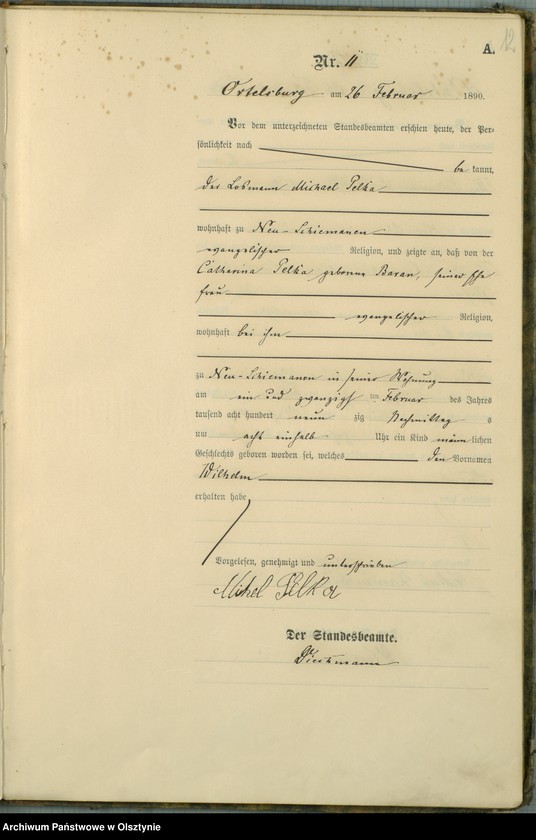 A.
12
Nr. 11
Ortelsburg am 26 Februar 1890.
Vor dem unterzeichneten Standesbeamten erschien heute, der Per=
sönlichkeit nach
be kannt,
der Losmann Michael Pelka
wohnhaft zu Neu-Schiemanen
evangelischer Religion, und zeigte an, daß von der
Catharina Pelka geborene Baran, seiner Ehe
frau
evangelischer Religion,
wohnhaft bei ihm
zu Neu-Schiemanen in seiner Wohnung
am ein und zwanzigsten Februar des Jahres
tausend acht hundert neun zig Nachmittag s
um acht einhalb Uhr ein Kind männ lichen
Geschlechts geboren worden sei, welches den Vornamen
Wilhelm
erhalten habe
Vorgelesen, genehmigt und unterschrieben
Michel Pelka
Der Standesbeamte.
Archiwum Państwowe w Olsztynie